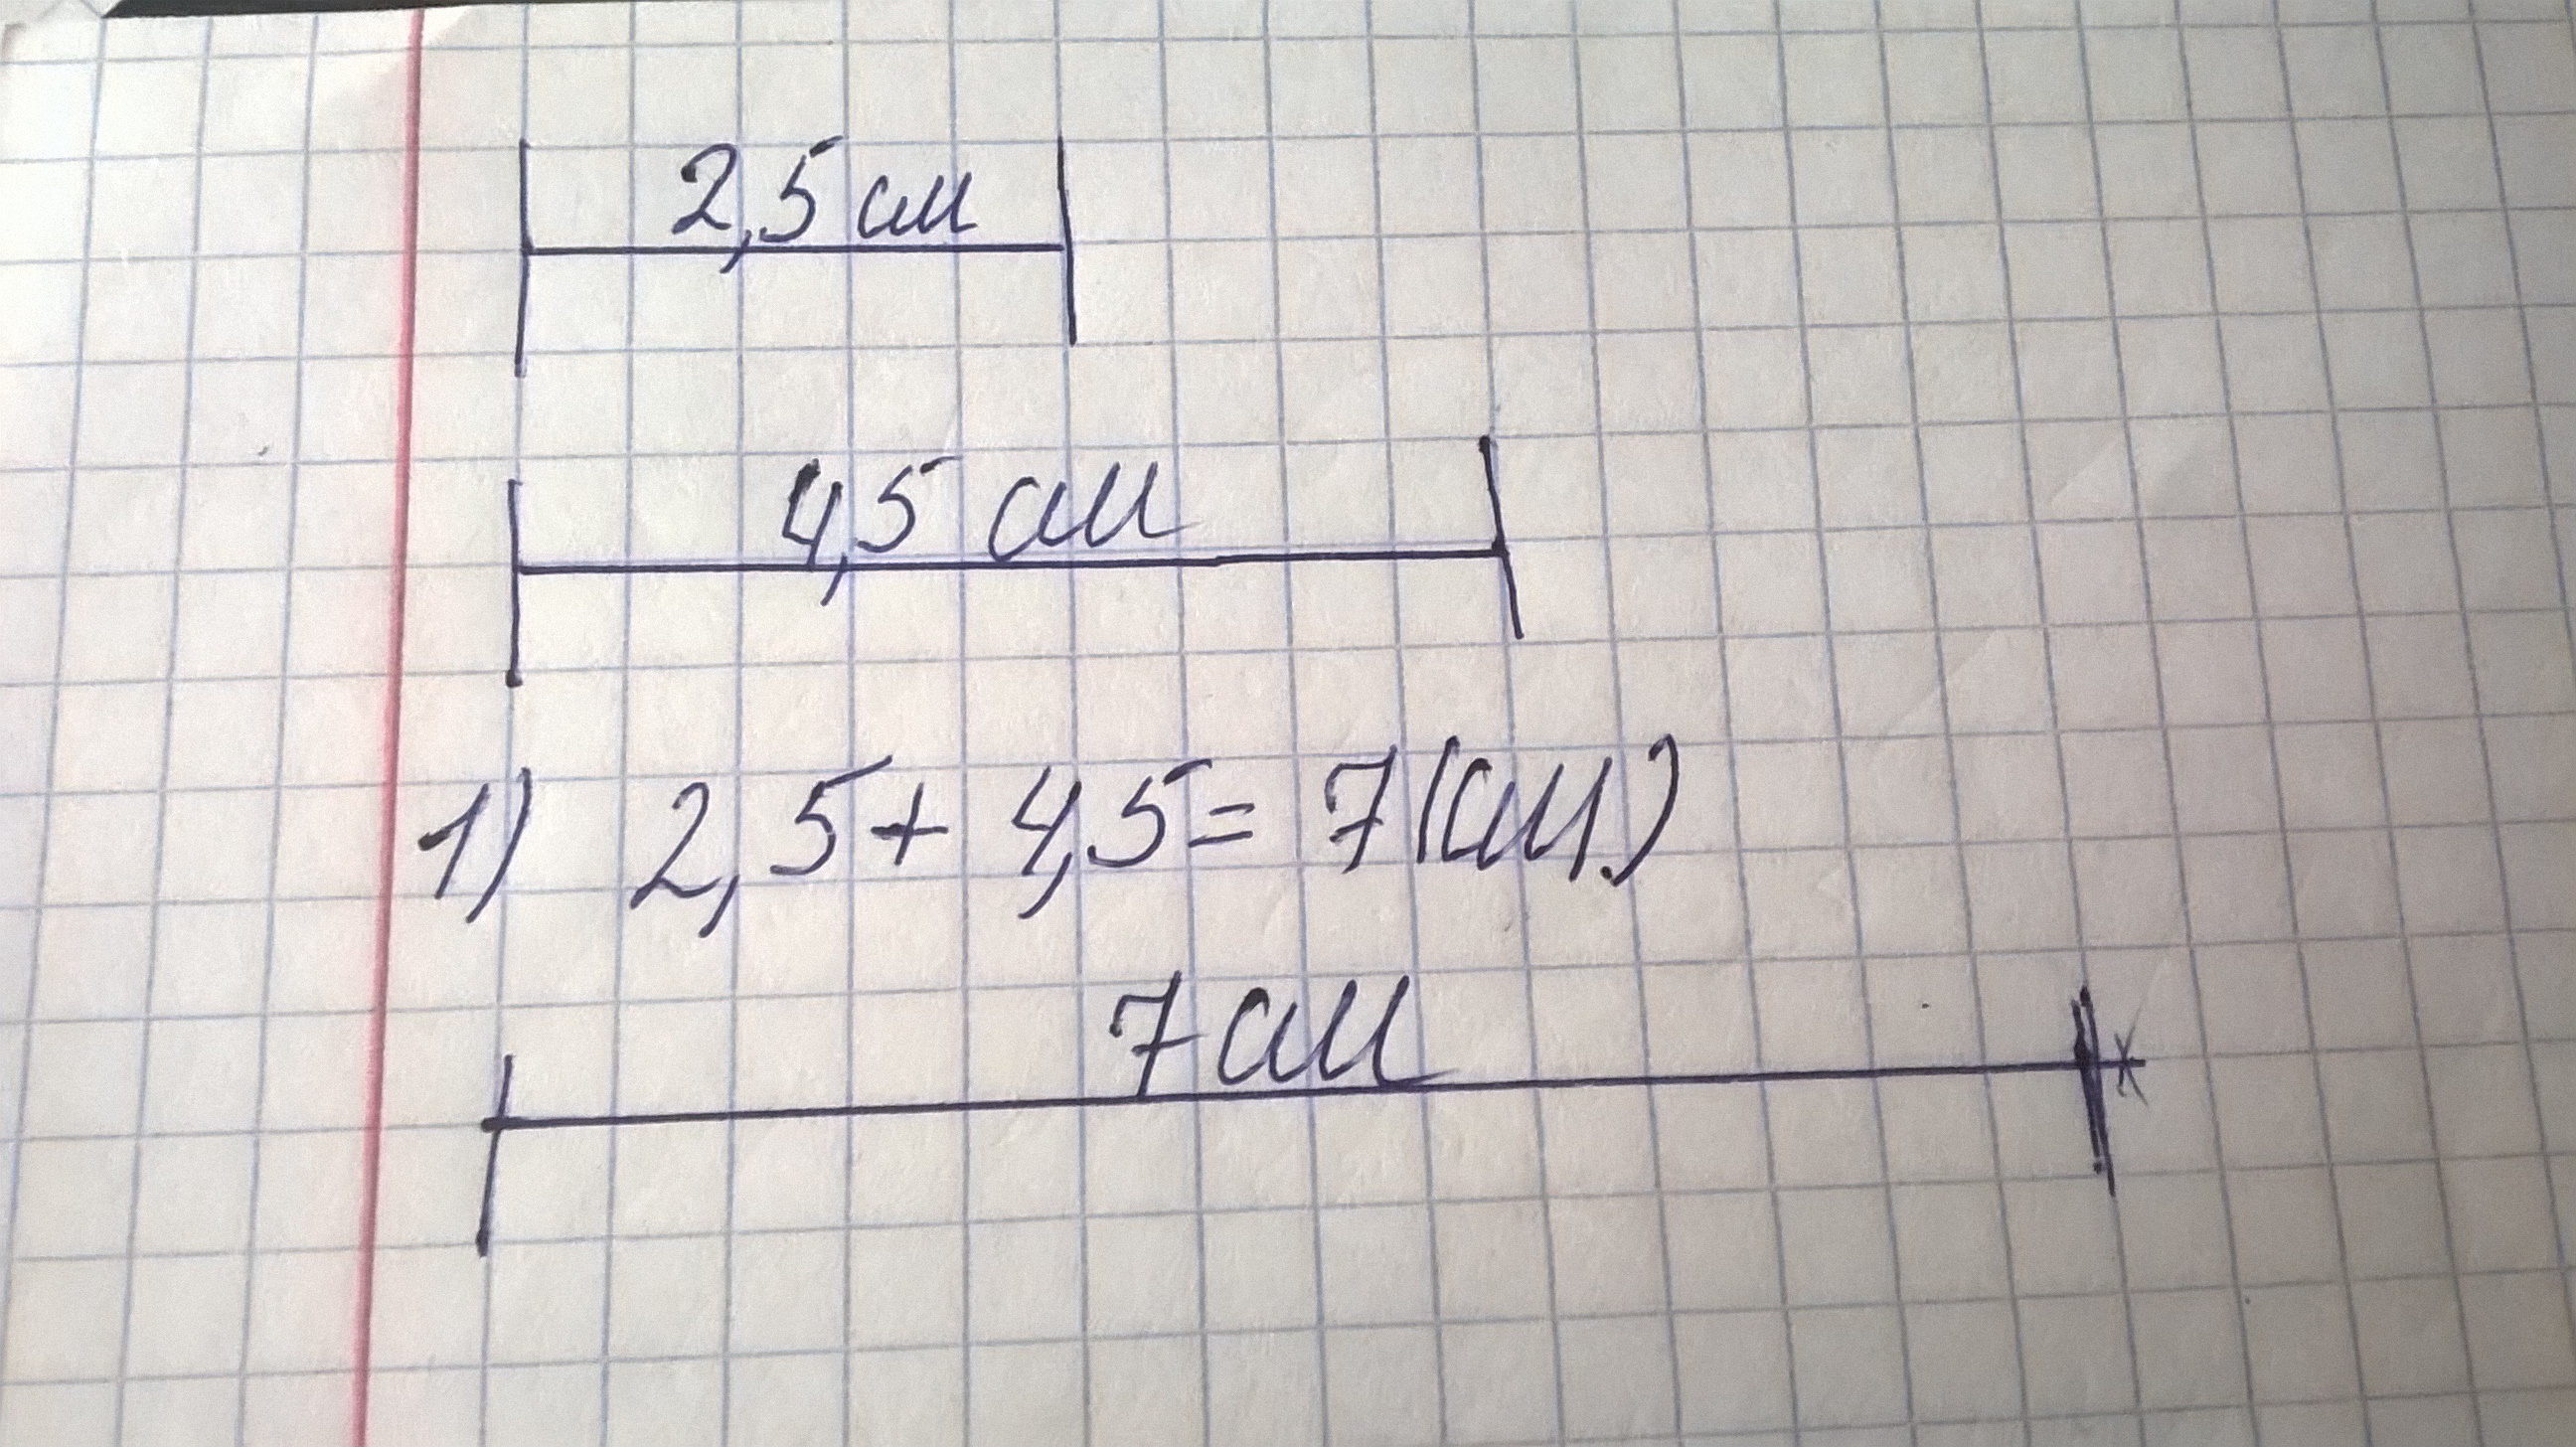 2,5 см
4,5 см
1) 2,5 + 4,5 = 7 (см.)
7 см